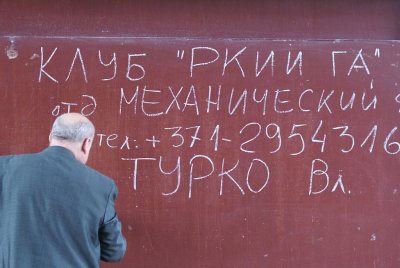 КЛУБ "РКИИ ГА"
отд МЕХАНИЧЕСКИЙ
тел: +371-2954316
ТУРКО Вл.